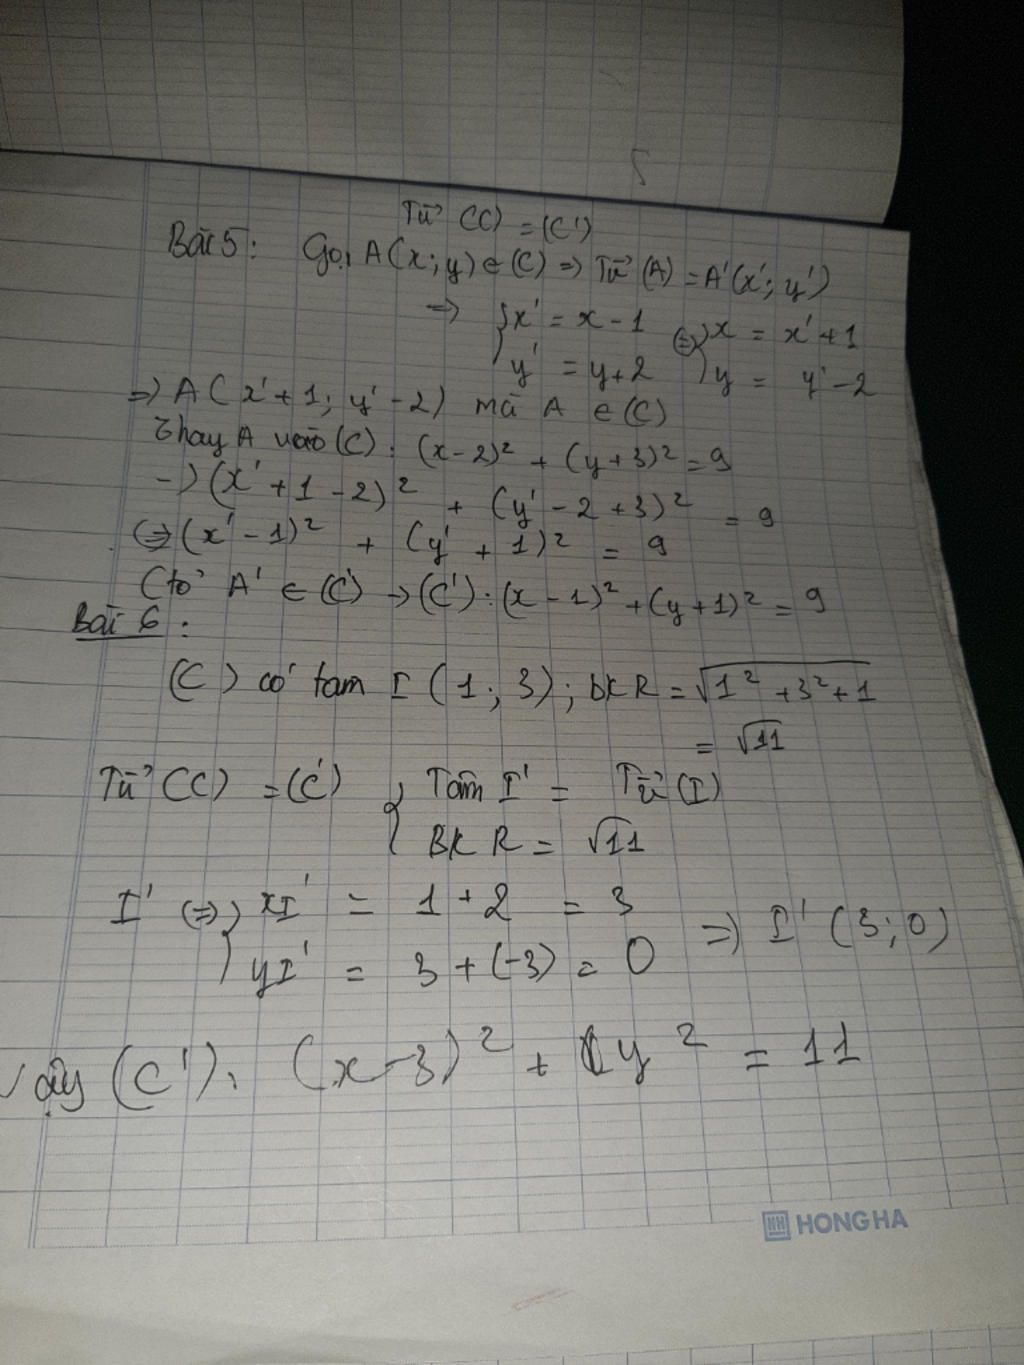 Tu⃗ (C) = (C')
Bài 5: Gọi A(x; y) ∈ (C) => Tu⃗ (A) = A'(x'; y')
=> { x' = x - 1 (=) { x = x' + 1
y' = y + 2 y = y' - 2
=> A ( x' + 1; y' - 2) mà A ∈ (C)
Thay A vào (C): (x - 2)² + (y + 3)² = 9
-> (x' + 1 - 2)² + (y' - 2 + 3)² = 9
(=) (x' - 1)² + (y' + 1)² = 9
Có A' ∈ (C') -> (C'): (x - 1)² + (y + 1)² = 9
Bài 6:
(C) có tam I (1; 3); BK R = √1² + 3² + 1
= √11
Tu⃗ (C) = (C') { Tâm I' = Tu⃗ (I)
BK R = √11
I' (=) { xI' = 1 + 2 = 3
yI' = 3 + (-3) = 0 => I' (3; 0)
Vậy (C'): (x - 3)² + y² = 11
HONG HA